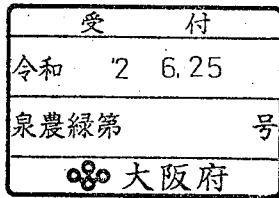 受付
令和 '2 6.25
泉農緑第 号
大阪府